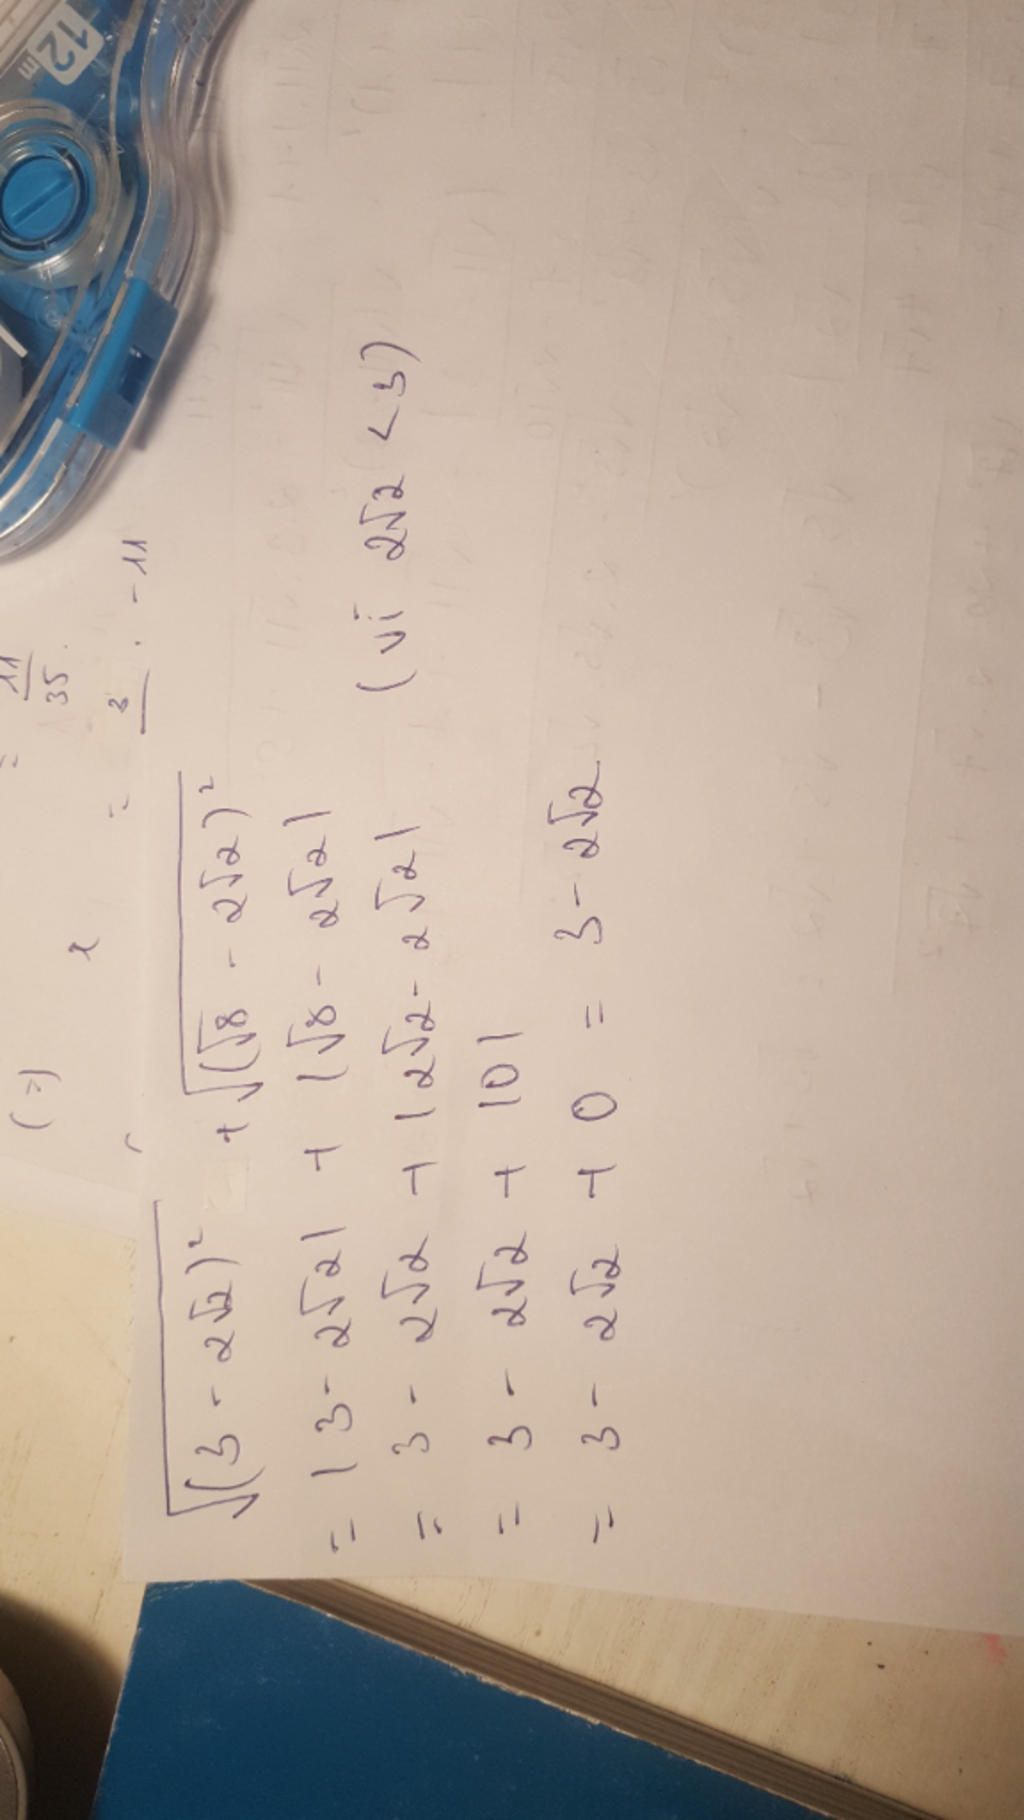 12m
11
35
(=)
x = 3 . -11
√(3 - 2√2)² + √(√8 - 2√2)²
= |3 - 2√2| + |√8 - 2√2|
= 3 - 2√2 + |2√2 - 2√2| (vì 2√2 < 3)
= 3 - 2√2 + |0|
= 3 - 2√2 + 0 = 3 - 2√2